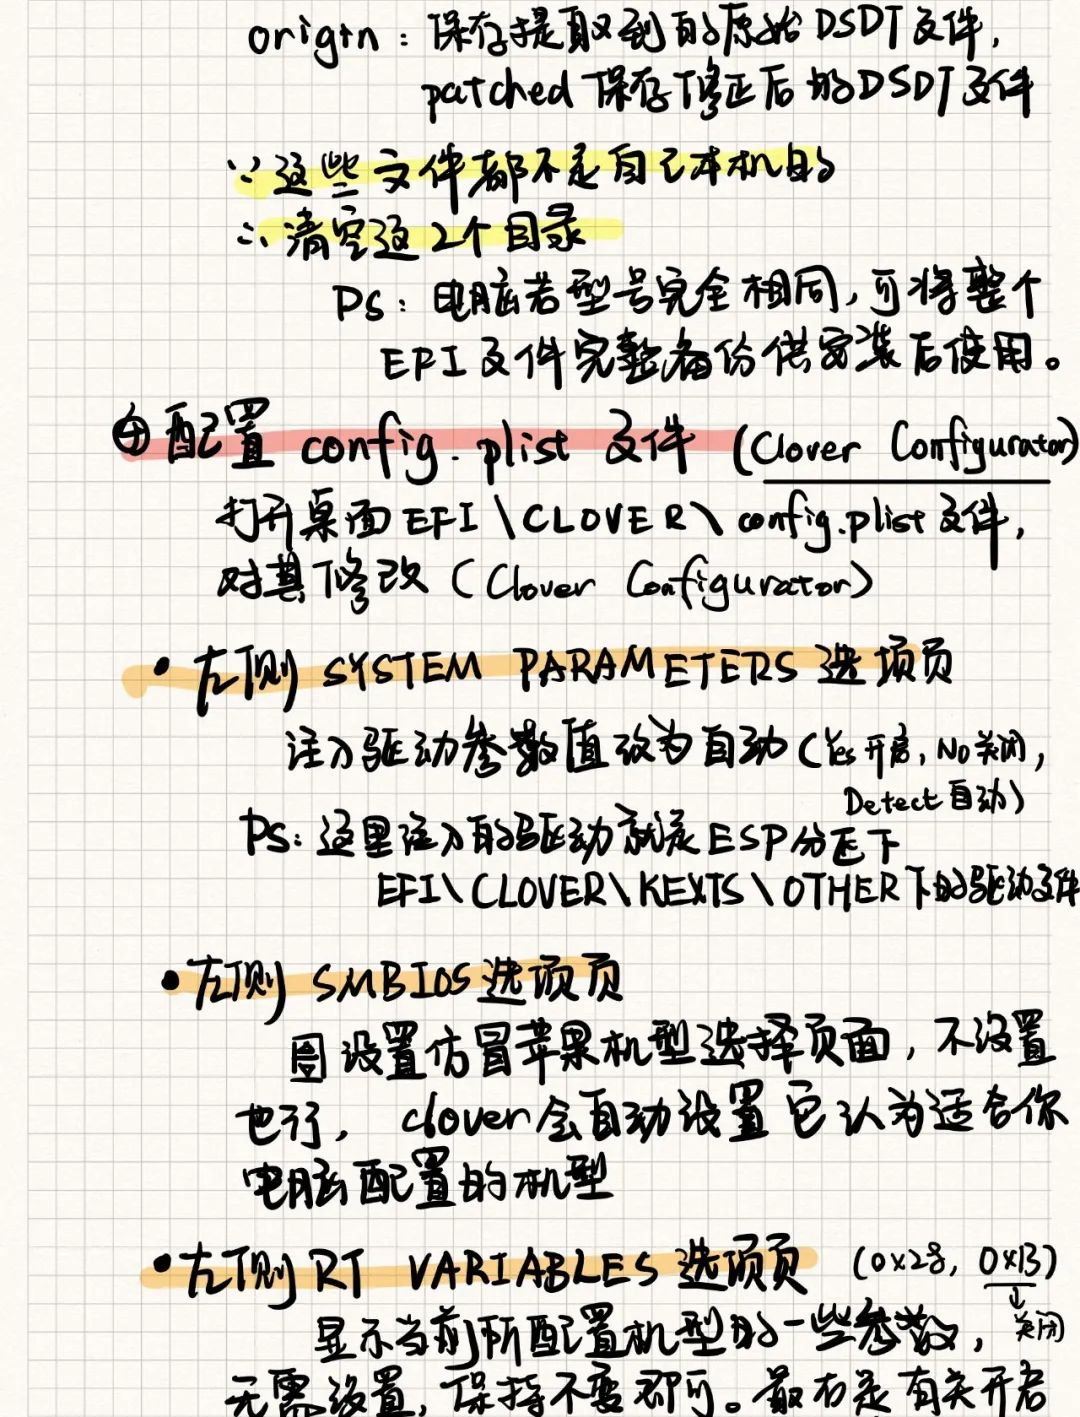 origin：保存提取到的原始DSDT文件，
patched 保存修正后的DSDT文件
∵这些文件都不是自己本机的
∴清空这2个目录
PS：电脑若型号完全相同，可将整个
EFI文件完整备份供安装后使用。
④配置 config.plist 文件 (Clover Configurator)
打开桌面EFI\CLOVER\config.plist文件，
对其修改 (Clover Configurator)
•左侧 SYSTEM PARAMETERS 选项页
注入驱动参数值改为自动 (Yes开启，No关闭，
Detect自动)
PS：这里注入的驱动就是ESP分区下
EFI\CLOVER\KEXTS\OTHER下的驱动文件
•左侧 SMBIOS选项页
设置仿冒苹果机型选择页面，不设置
也行，clover会自动设置它认为适合你
电脑配置的机型
•左侧RT VARIABLES 选项页 (0x28, 0x13)
↓
显示当前所配置机型的一些参数，关闭
无需设置，保持不变即可。最右是有关开启